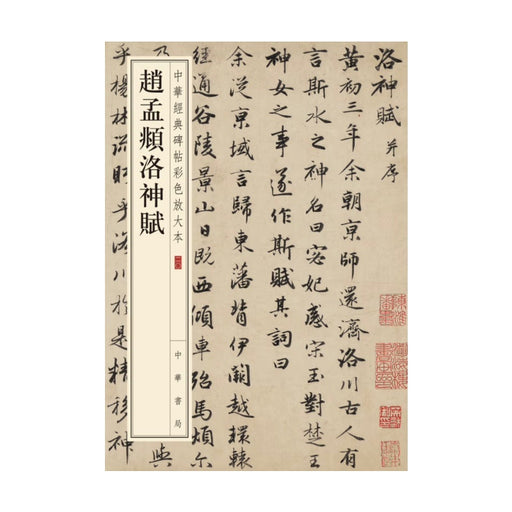 洛神賦 并序
黃初三年余朝京師還濟洛川古人有
言斯水之神名曰宓妃感宋玉對楚王
神女之事遂作斯賦其詞曰
余從京域言歸東藩背伊闕越轘轅
經通谷陵景山日既西傾車殆馬煩尔
乃
與
乎楊林流盼乎洛川於是精移神
中華經典碑帖彩色放大本
趙孟頫洛神賦
中華書局